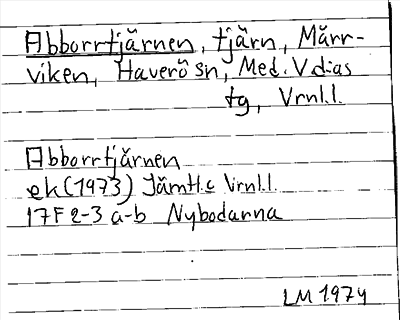 Abborrtjärnen, tjärn, Märr-
viken, Haverö sn, Med. V d:as
tg, Vrnl.l.
Abborrtjärnen
ek (1973) Jämtl.c Vrnl.l.
17F 2-3 a-b Nybodarna
LM 1974